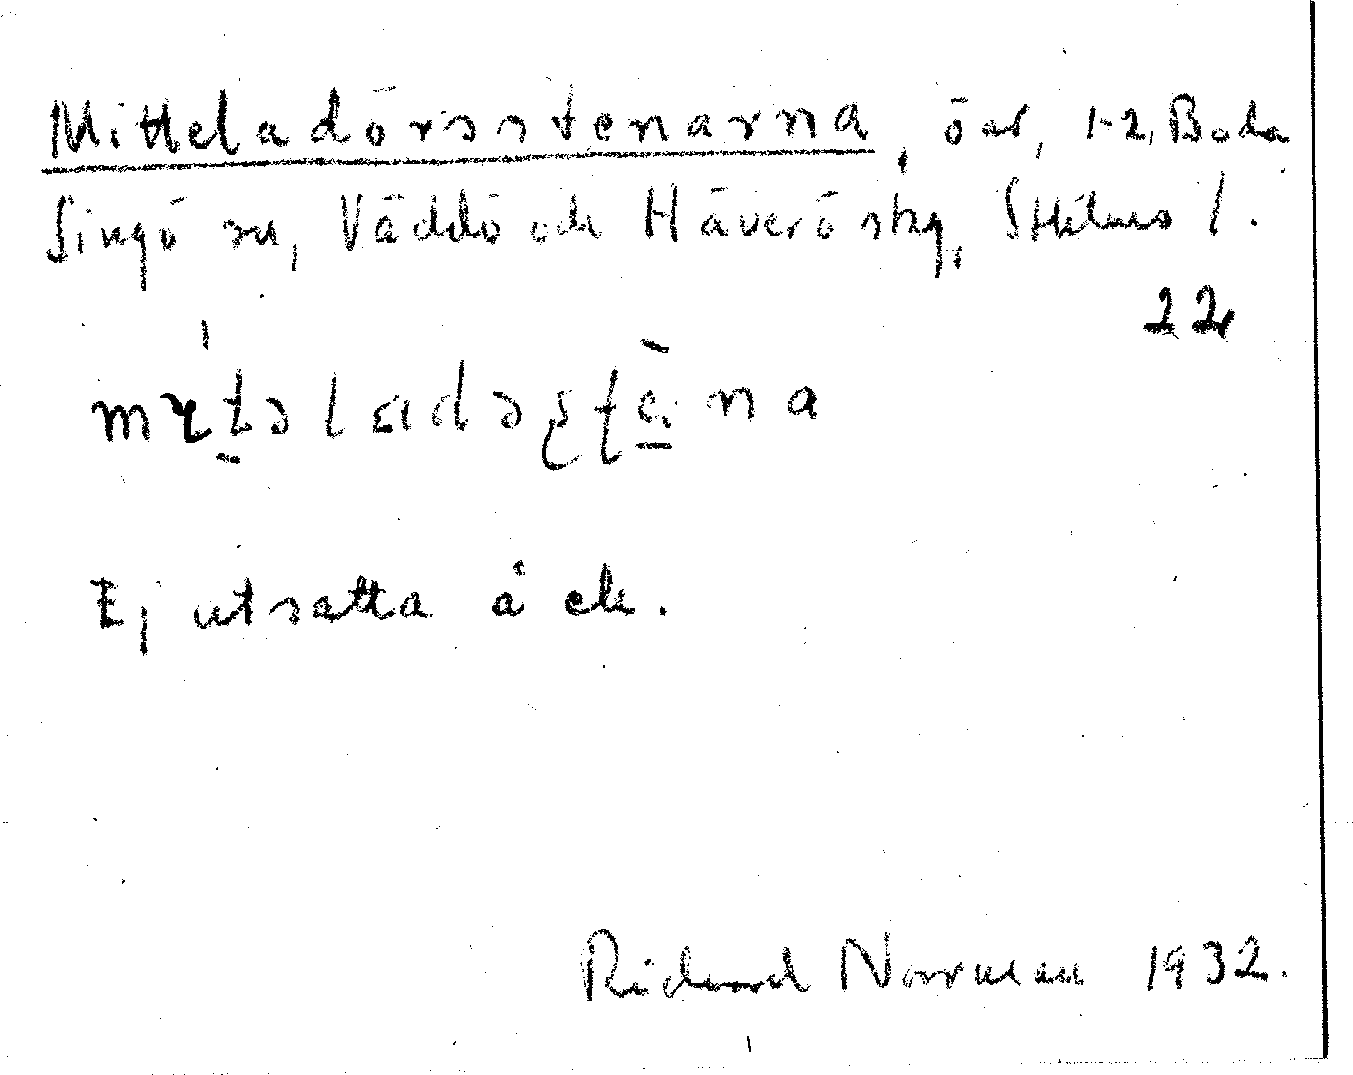 Mitteladörsstenarna, öar, 1-2, Boda
Singö sn, Väddö och Häverö skg, Sthlms l.
22
Ej utsatta å ek.
Richard Norrman 1932.